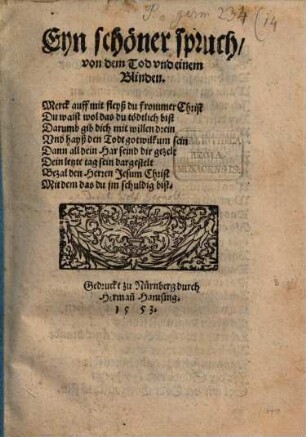 P. germ 234 (14
Eyn schöner spruch/
von dem Tod vnd einem
Blinden.
Merck auff mit fleyß du frommer Christ
Du waist wol das du tödlich bist
Darumb gib dich mit willen drein
Vnd hayß den Todt gotwilkum sein
Dann all dein Har seind dir gezelt
Dein letzte tag sein dargestelt
Bezal den Herren Jesum Christ
Mit dem das du jm schuldig bist.
BIBLIOTHECA
REGIA
MONACENSIS.
Gedruckt zu Nürnberg durch
Herman̄ Hamsing.
1553.